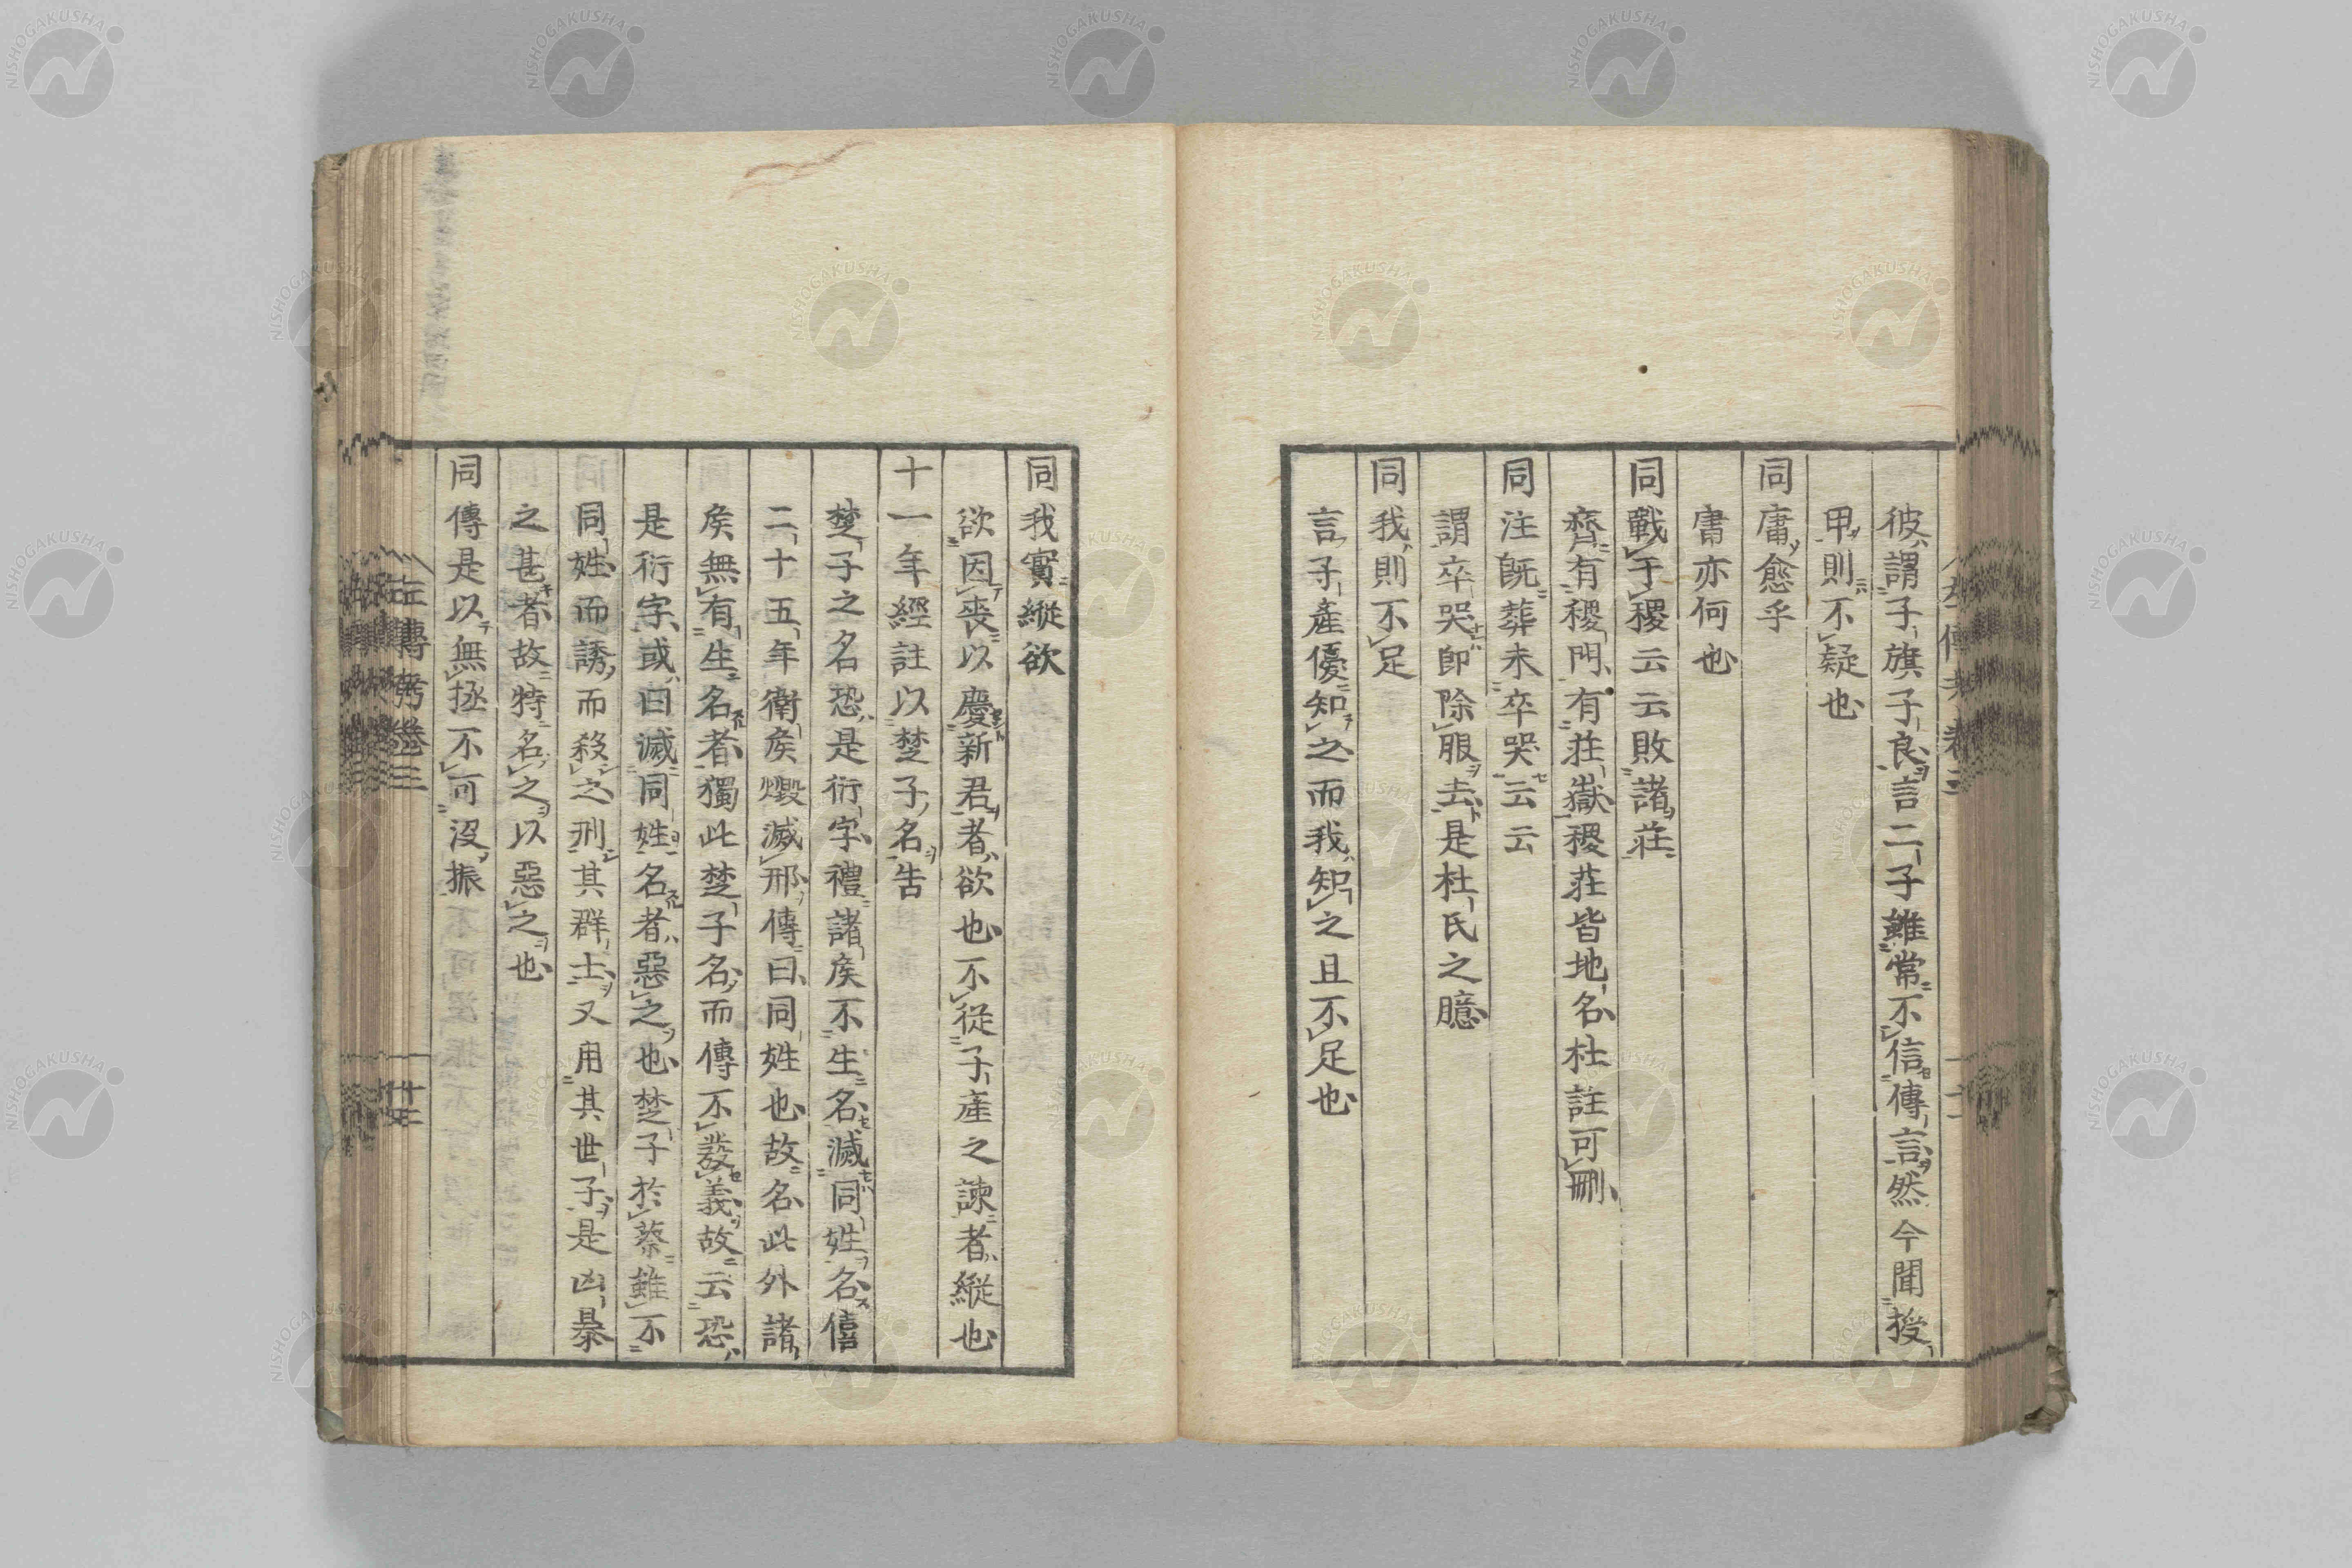 彼謂子旗子良言二子雖常不信傳言然今聞授
甲則不疑也
同庸愈乎
書亦何也
同戰于稷云云敗諸莊
齊有稷門有莊嶽稷莊皆地名杜註可刪
同注既葬未卒哭云云
謂卒哭即除服去是杜氏之臆
同我則不足
言子產優知之而我知之且不足也
同我實縱欲
欲因喪以慶新君者欲也不從子產之諫者縱也
十一年經註以楚子名告
楚子之名恐是衍字禮諸侯不生名滅同姓名僖
二十五年衛侯燬滅邢傳曰同姓也故名此外諸
侯無有生名者獨此楚子名而傳不發義故云恐
是衍字或曰滅同姓名者惡之也楚子於蔡雖不
同姓而誘而殺之刑其群士又用其世子是凶暴
之甚者故特名之以惡之也
同傳是以無拯不可沒振
左傳考卷三
NISHOGAKUSHA